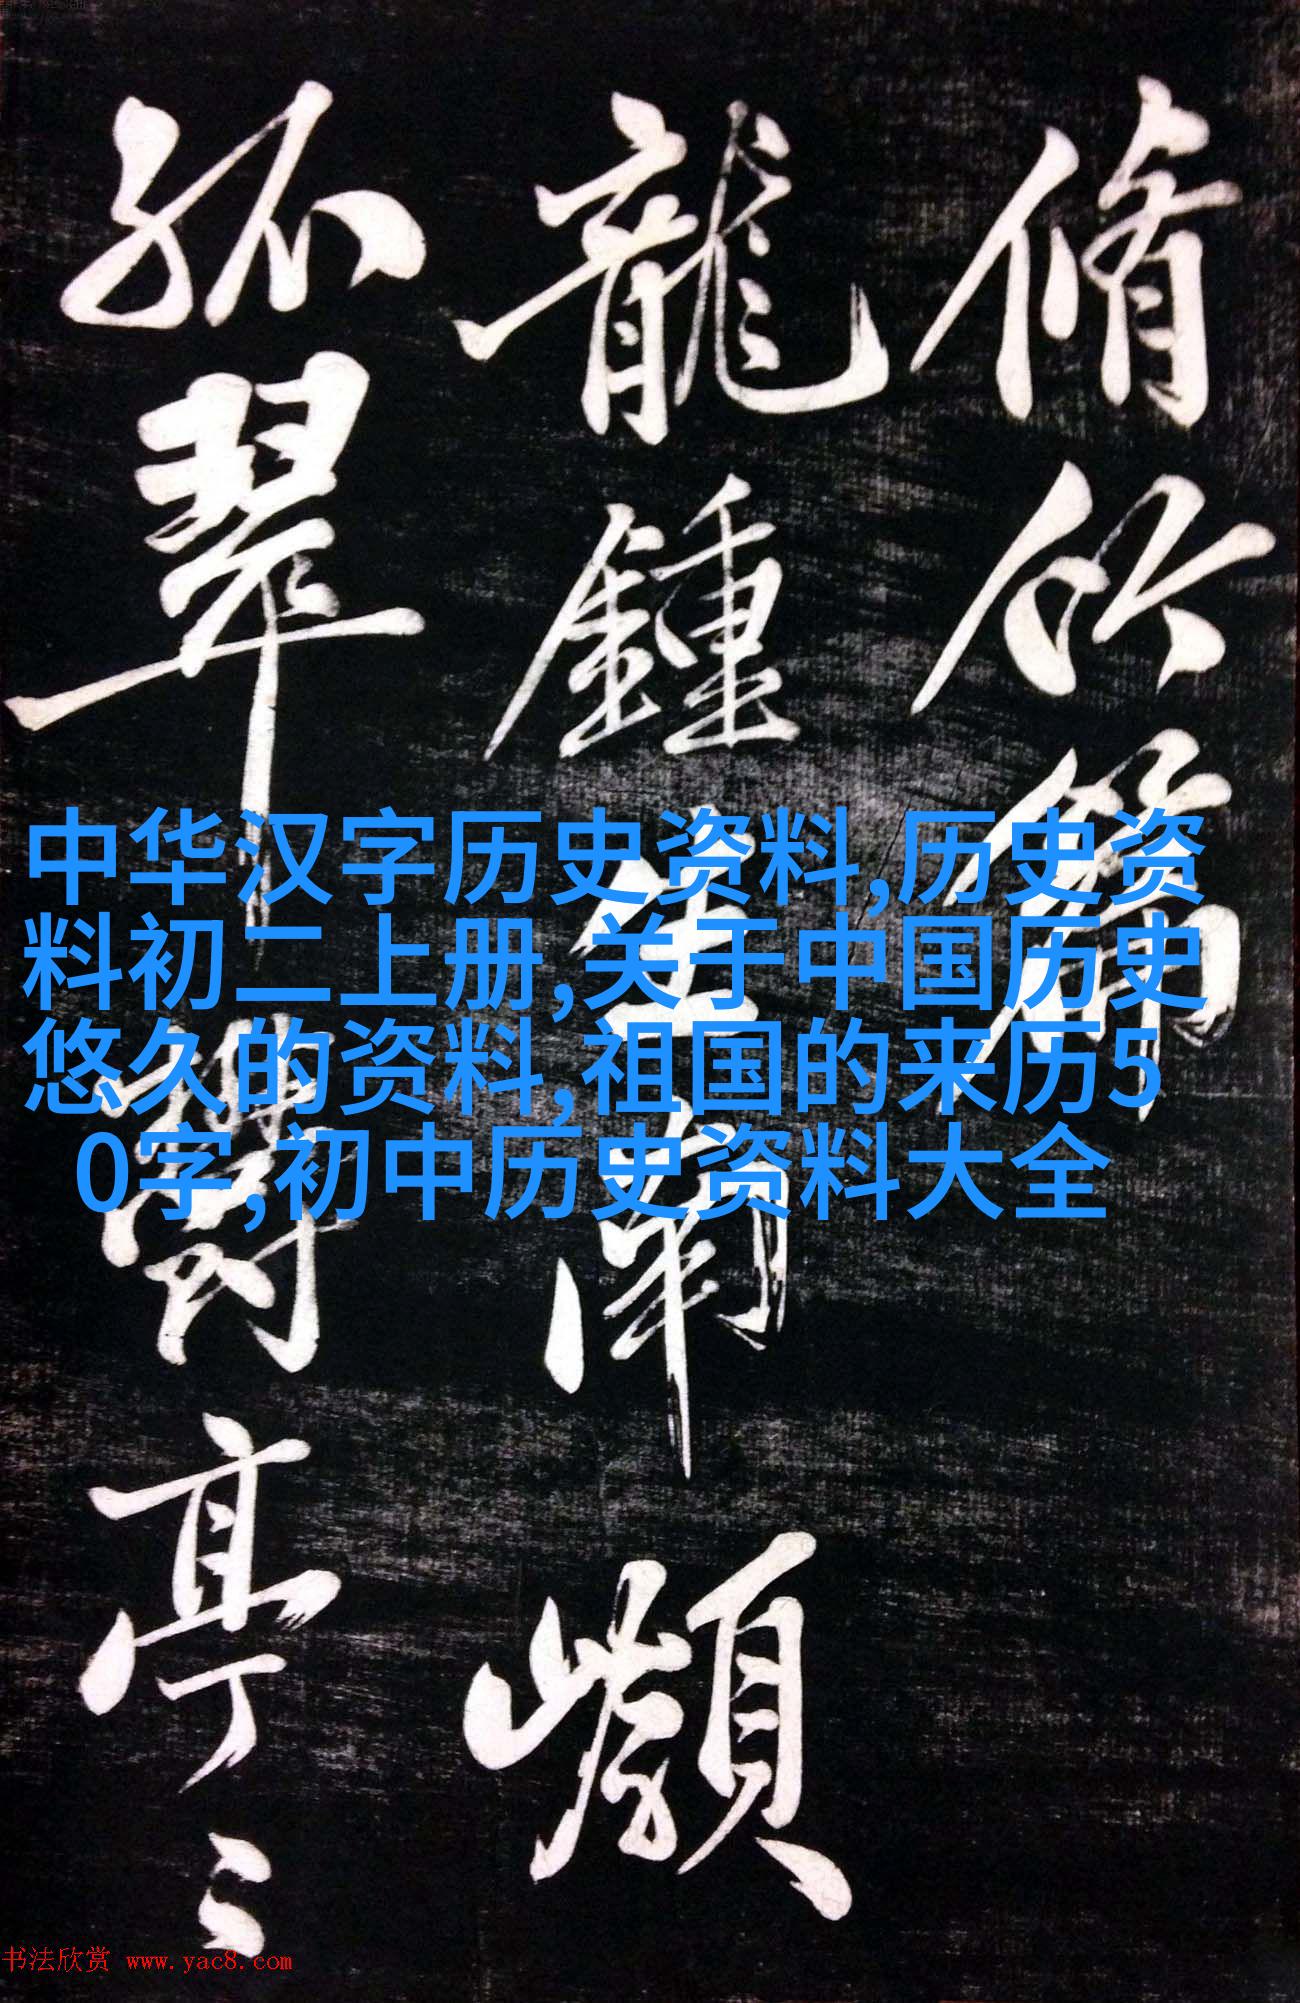 脩竹篇
龍鍾生南嶽
孤翠鬱亭亭
中华汉字历史资料,历史资
料初二上册,关于中国历史
悠久的资料,祖国的来历5
0字,初中历史资料大全
书法欣赏 www.yac8.com